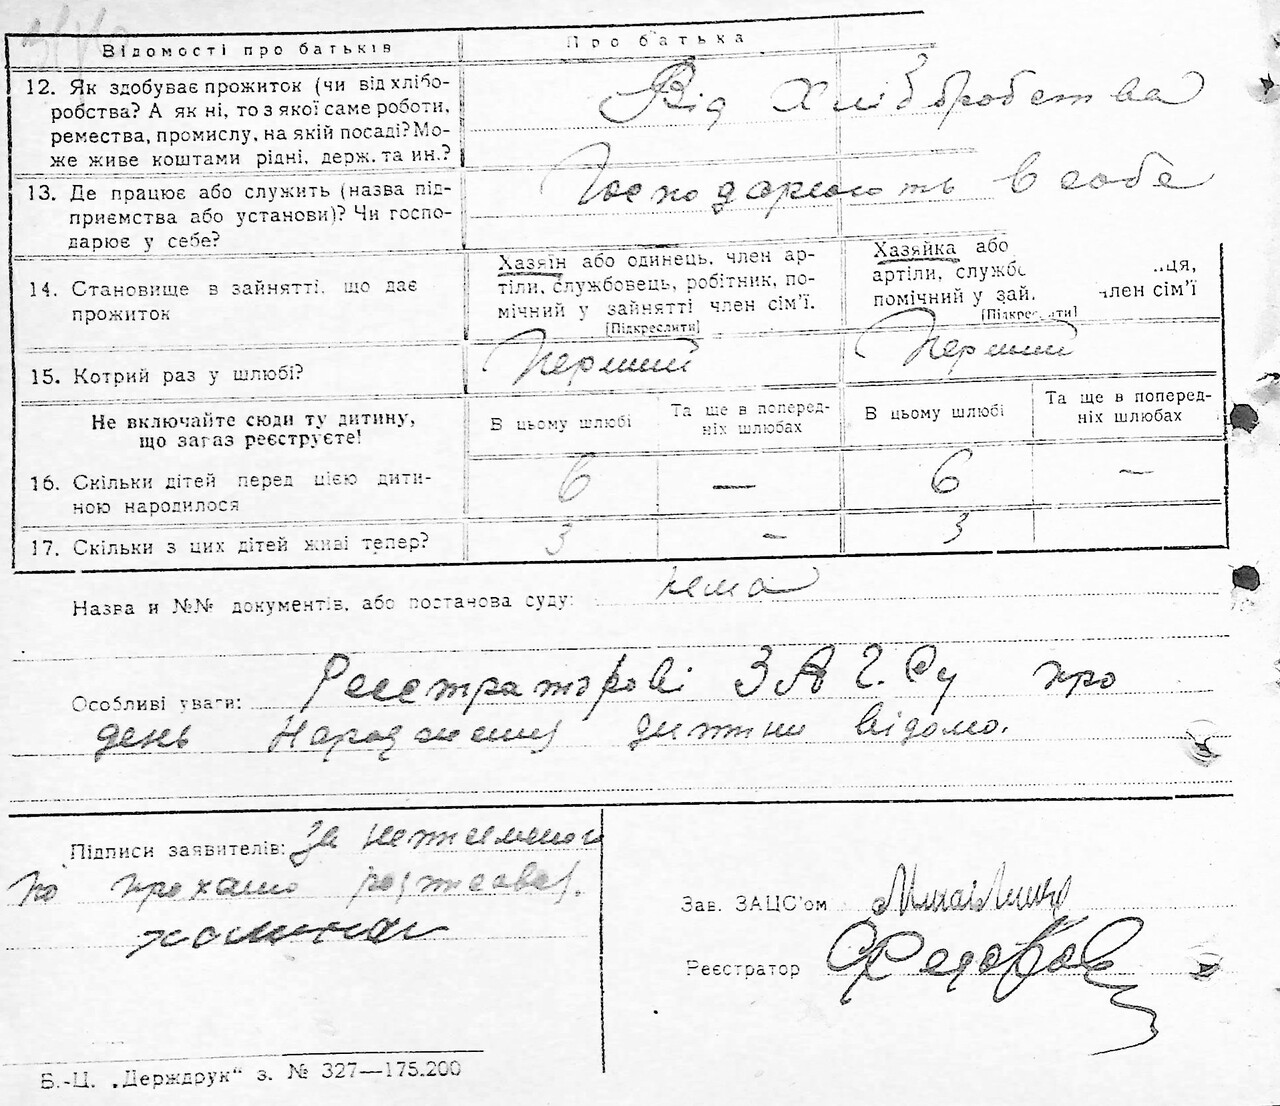 Відомості про батьків
Про батька
12. Як здобуває прожиток (чи від хлібо-
робства? А як ні, то з якої саме роботи,
ремества, промислу, на якій посаді? Мо-
же живе коштами рідні, держ. та ин.?
Від хліборобства
13. Де працює або служить (назва під-
приємства або установи)? Чи госпо-
дарює у себе?
Господарюють в себе
14. Становище в зайнятті, що дає
прожиток
Хазяїн або одинець, член ар-
тілі, службовець, робітник, по-
мічний у зайнятті член сім'ї.
[Підкреслити]
Хазяйка або
артілі, службо
помічний у зай. член сім'ї
[Підкреслити]
15. Котрий раз у шлюбі?
Перший
Перший
Не включайте сюди ту дитину,
що зараз реєструєте!
В цьому шлюбі
Та ще в поперед-
ніх шлюбах
В цьому шлюбі
Та ще в поперед-
ніх шлюбах
16. Скільки дітей перед цією дити-
ною народилося
6 — 6 —
17. Скільки з цих дітей живі тепер?
3 – 3
Назва и №№ документів, або постанова суду: нема
Особливі уваги: Реєстраторові ЗАГСу про
день народження дитини відомо.
Підписи заявителів: За неписьменого
по проханю
Зав. ЗАЦС'ом
Реєстратор Федоров
Б.-Ц. „Держдрук“ з. № 327—175.200